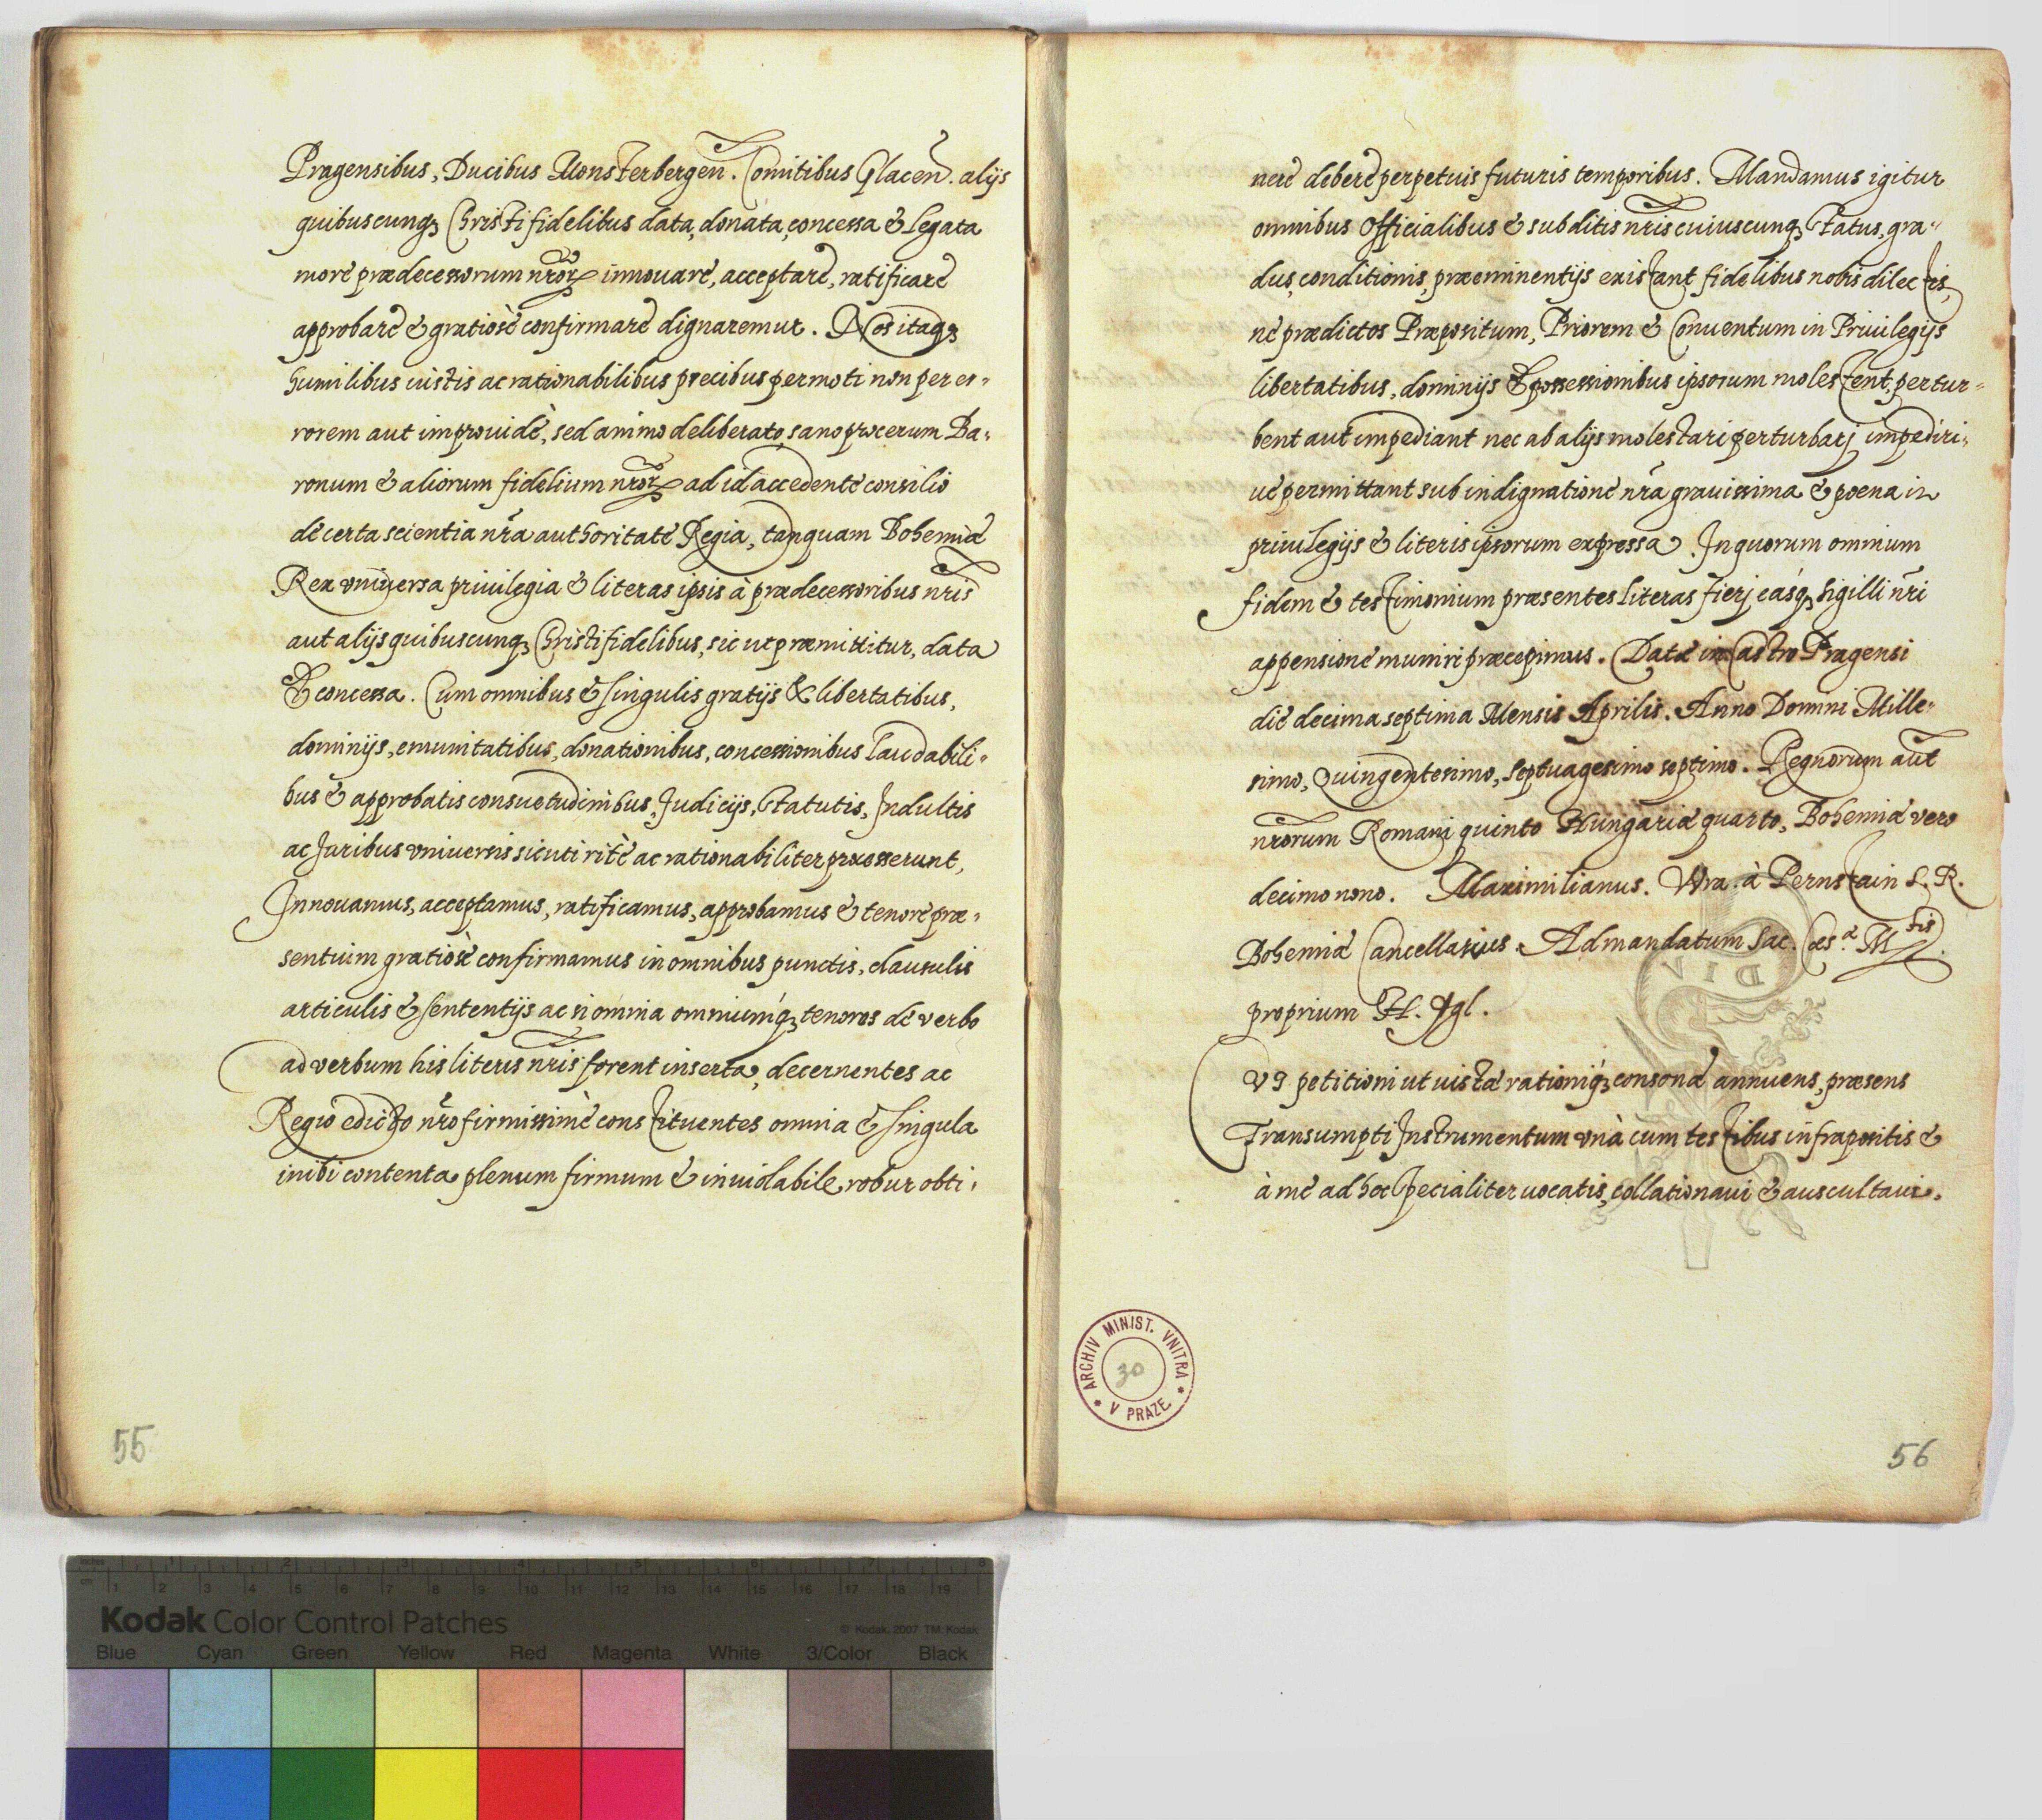 Pragensibus, Ducibus Monsterbergen̄. Comitibus Glacen̄. alijs
quibuscunqꝫ Christifidelibus data, donata, concessa & Legata
more prædecessorum nr̄oꝝ innouare, acceptare, ratificare
approbare & gratiosè confirmare dignaremur. Nos itaqꝫ
humilibus iustis ac rationabilibus precibus permoti non per er-
rorem aut improuidè, sed animo deliberato, sano procerum Ba-
ronum & aliorum fidelium nr̄oꝝ ad id accedente consilio
de certa scientia nr̄a authoritate Regia, tanquam Bohemiæ
Rex vniuersa priuilegia & literas ipsis à prædecessoribus nr̄is
aut alijs quibuscunqꝫ Christifidelibus, sic ut præmittitur, data
& concessa. Cum omnibus & singulis gratijs & libertatibus,
dominijs, emunitatibus, donationibus, concessionibus laudabili-
bus & approbatis consuetudinibus, Judicijs, Statutis, Indultis
ac Juribus vniuersis sicuti ritè ac rationabiliter processerunt,
Innouamus, acceptamus, ratificamus, approbamus & tenore præ-
sentium gratiosè confirmamus in omnibus punctis, clausulis
articulis & sententijs ac si omnia omniumq́ꝫ tenores de verbo
ad verbum his literis nr̄is forent inserta, decernentes ac
Regio edicto nr̄o firmissimè constituentes omnia & singula
inibi contenta plenum firmum & inuiolabile robur obti-
55
nere debere perpetuis futuris temporibus. Mandamus igitur
omnibus Officialibus & subditis nr̄is cuiuscunqꝫ Status, gra-
dus, conditionis, præeminentijs existant fidelibus nobis dilectis,
ne prædictos Præpositum, Priorem & Conuentum in Priuilegijs
libertatibus, dominijs & possessionibus ipsorum molestent, pertur-
bent aut impediant nec ab alijs molestari perturbarj impediri-
ue permittant sub indignatione nr̄a grauissima & poena in
priuilegijs & literis ipsorum expressa. In quorum omnium
fidem & testimonium præsentes literas fierj easq́ꝫ sigilli nr̄i
appensione muniri præcepimus. Datæ in Castro Pragensi
die decima septima Mensis Aprilis. Anno Domini Mille-
simo, Quingentesimo, Septuagesimo septimo. Regnorum aūt
nr̄orum Romani quinto Hungariæ quarto, Bohemiæ vero
decimo nono. Maximilianus. Wra. à Pernstain S. R.
Bohemiæ Cancellarius. Ad mandatum Sac. Cæs.æ Mtis.
proprium H. Ygl.
Vꝫ petitioni ut iustæ rationiq́ꝫ consonæ annuens, præsens
Transumpti Instrumentum vnà cum testibus infrapositis &
à me ad hoc specialiter uocatis, collationaui & auscultaui.
ARCHIV MINIST. VNITRA * V PRAZE *
30
56
Kodak Color Control Patches
© Kodak, 2007 TM: Kodak
Blue Cyan Green Yellow Red Magenta White 3/Color Black